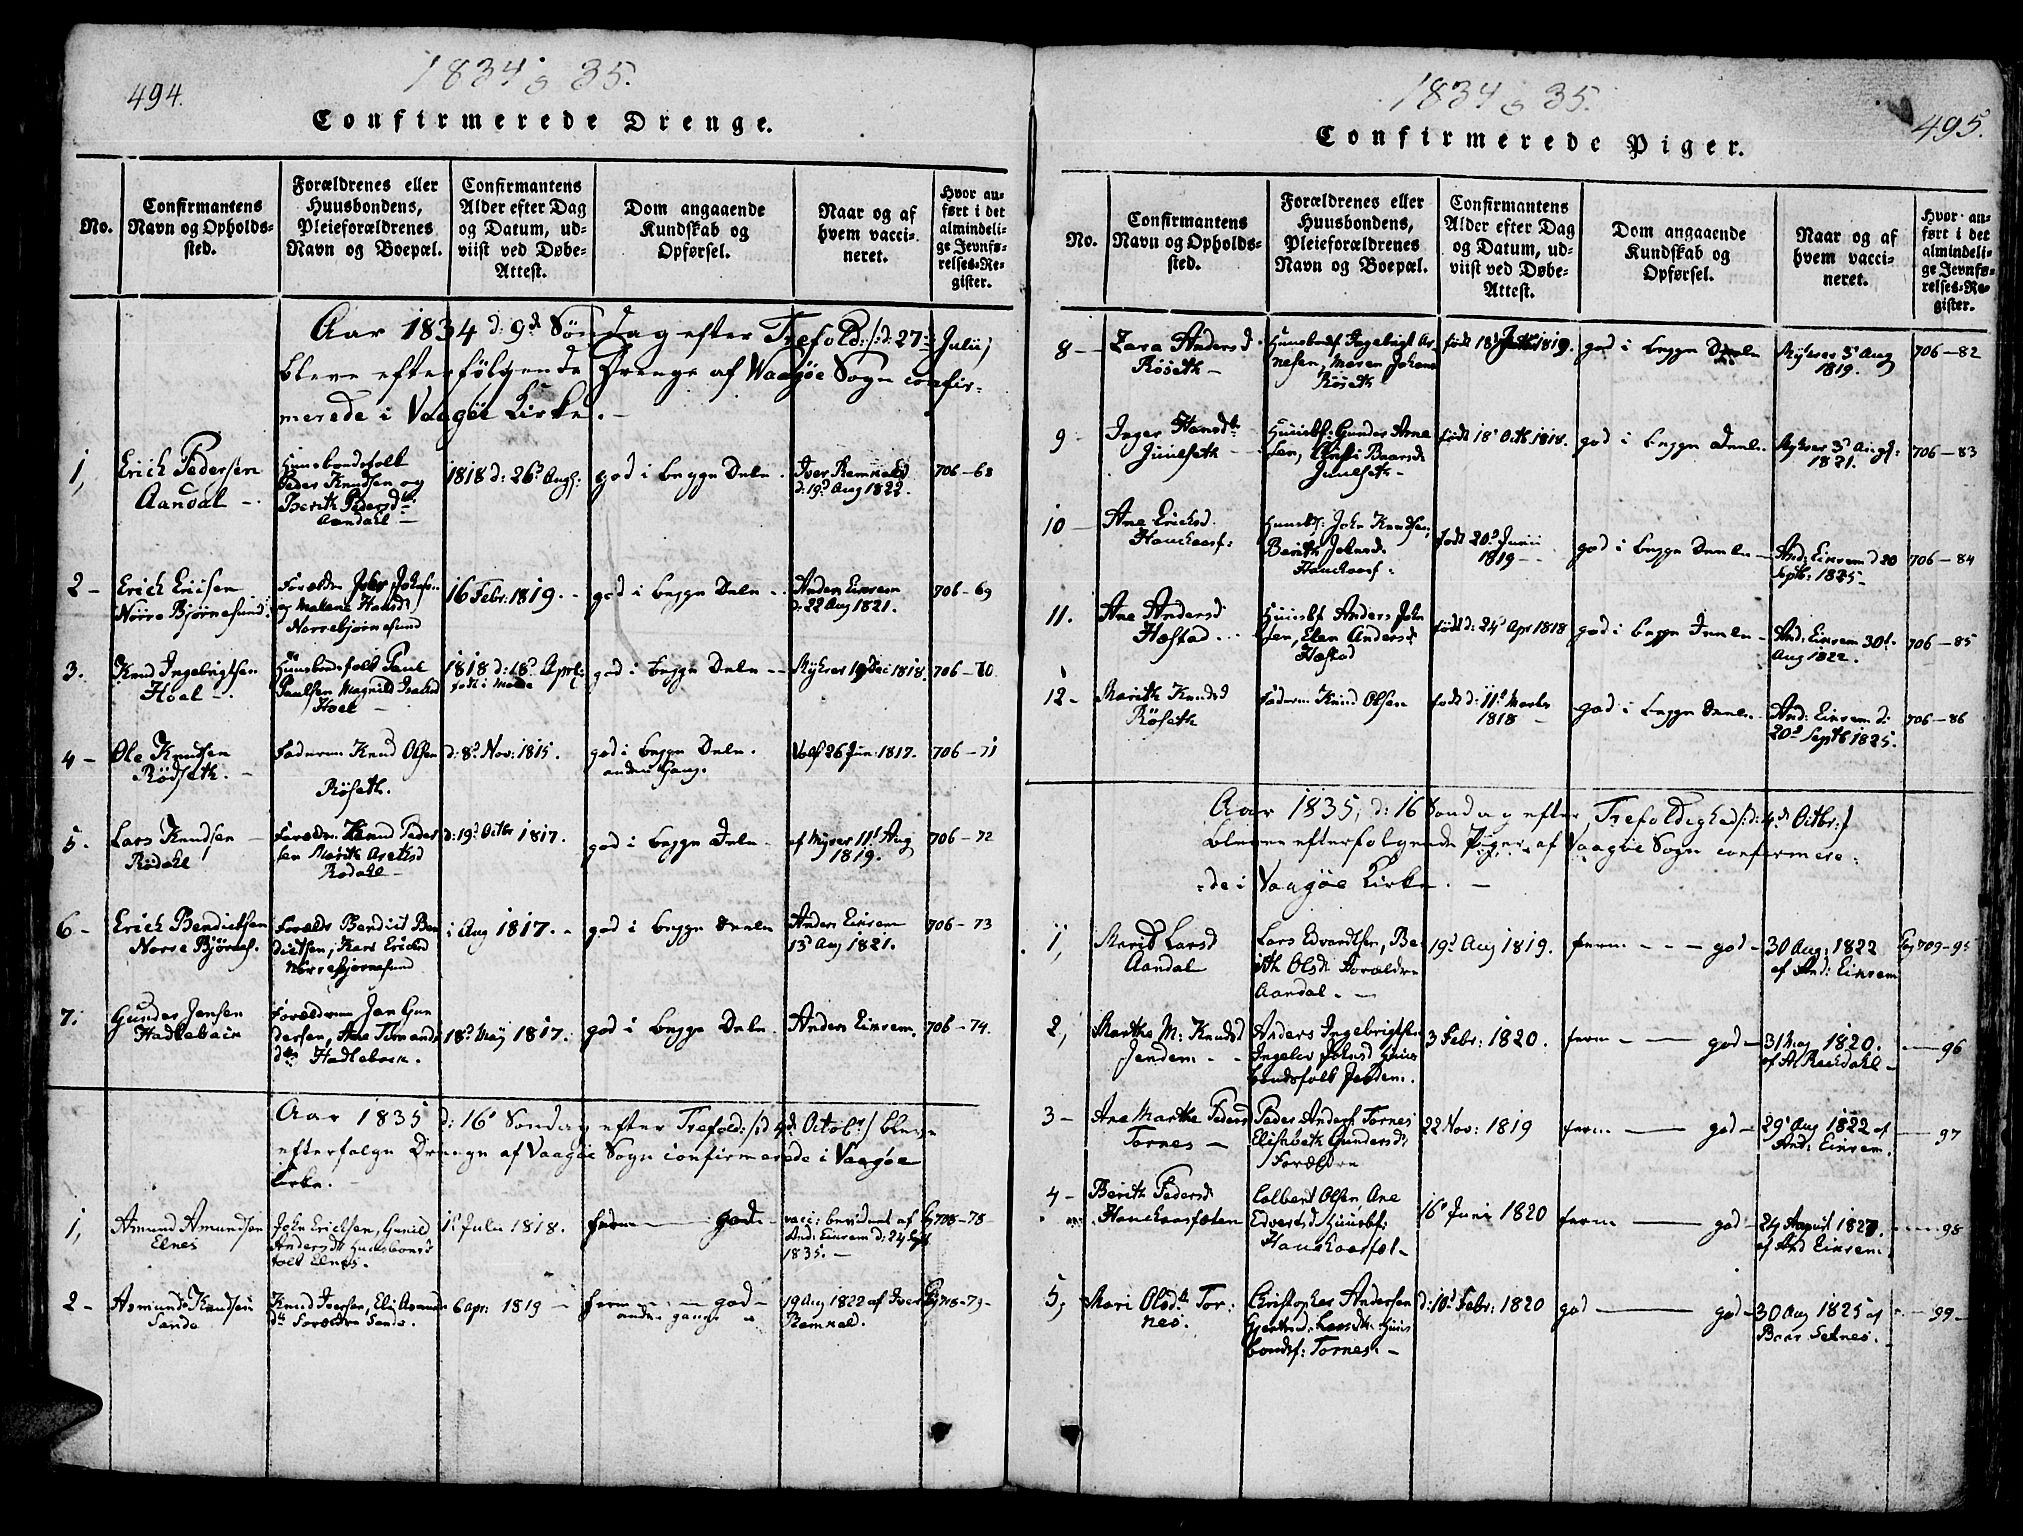 494.
1834 & 35.
Confirmerede Drenge.
No.
Confirmantens
Navn og Opholds-
sted.
Forældrenes eller
Huusbondens,
Pleieforældrenes
Navn og Boepæl.
Confirmantens
Alder efter Dag
og Datum, ud-
viist ved Døbe-
Attest.
Dom angaaende
Kundskab og
Opførsel.
Naar og af
hvem vacci-
neret.
Hvor an-
ført i det
almindeli-
ge Jevnfø-
relses-Re-
gister.
Aar 1834 d: 9d Søndag efter Trefold:/: d: 27de Julii/
bleve efterfølgende Drenge af Waagøe Sogn confir-
merede i Vaagøe Kirke. -
1,
Erich Pedersen
Aandal -
Huusbondsfolk
Peder Knudsen og
Berith Pedersdtr
Aandahl -
1818 d: 26d Aug:
god i begge Dele.
Iver Remmeld
d: 19d Aug 1822.
706-68
2 -
Erich Eriksen
Norre Bjørnesund
Forældre John Johnsen
og Malene Hansd
Norrebjørnesund
16 Febr: 1819. -
god i begge Dele -
Anders Einrem
d: 22 Aug 1821.
706-69
3.
Knud Ingebrigtsen
Hoel -
Huusbondsfolk Paul
Paulsen Magnild Isaksd
Hoel -
1818 d: 18d April:
god i begge Dele -
Myhrer 19 Dec 1818.
706-70
4 -
Ole Knudsen
Rødseth. -
Faderen Knud Olsen
Røseth.
d: 8d Nov: 1815.
god i begge Dele.
anden Gang.
Wolf 26 Jun: 1817.
706-71
5.
Lars Knudsen
Rødahl
Forældre Knud Peder
sen Marith
Rødahl -
d: 19d Octbr 1817.
god i begge Dele
af Myrer 11d Aug
1819.
706-72
6 -
Erich Bendictsen
Norre Bjørnes.
Forældre Bendict Ben
dictsen, Kari Ericksd
Norrebjørnesund
i Aug 1817. -
god i begge Deele
Anders Einrem
13d Aug 1821.
706-73
7.
Gunder Jensen
Hadlebain
Forældrene Jen Gun
dersen, Ane
Hadleboen.
18d May 1817.
god i begge Dele.
Anders Einrem.
706-74.
Aar 1835 d: 16d Søndag efter Trefold:/: d 4d: Octobr/ bleve
efterfølge Drenge af Vaagøe Sogn confirmerede i Vaagøe
Kirke. -
1,
Amund Amundsen
Elnes
John Ericksen, Gunild
Andersdtr Huusbonds
folk Elnes.
1d Julii 1818.
ferm - god -
vacci: beviidnet af
And: Einrem d: 24 Sept
1835. -
-78
2 -
Asmund Knudsen
Sande
Knud Iversen, Eli Asmunds
dtr Forældre Sande.
6 Apr: 1819 -
ferm - god -
anden gang
19 Aug 1822 af Iver
Remmeld.
-79-
495.
1834 & 35.
Confirmerede Piger.
No.
Confirmantens
Navn og Opholds-
sted.
Forældrenes eller
Huusbondens,
Pleieforældrenes
Navn og Boepæl.
Confirmantens
Alder efter Dag
og Datum, ud-
viist ved Døbe-
Attest.
Dom angaaende
Kundskab og
Opførsel.
Naar og af
hvem vacci-
neret.
Hvor an-
ført i det
almindeli-
ge Jevnfø-
relses-Re-
gister.
8 -
Zara Andersd
Røseth -
Huusbonf Ingebrigt Ar-
nesen, Maren Johans
Røseth
god i begge Deele
Myhrer 3d Aug
1819.
706-82
9 -
Inger Hansdtr
Juulseth
Huusbf: Gunder Arne
sen, Baarsd
Juulseth -
født 18d Octb: 1818.
god i begge Deele
Myhrer 3d Aug:
1821.
706-83
10 -
Ane Ericksd.
Houckaasf:
Huusbf: John Knudsen,
Berith Johnsd.
Houckaasf -
født 20d Junii
1819 -
god i begge Deele -
And: Einrem d 20
Septb: 1825 -
706-84
11.
Ane Andersd
Hæstad. -
Huusbf Anders John
sen, Elen Andersd
Hæstad
født d: 24d Apr 1818
god i begge Deele -
And: Einrem 30d
Aug 1822.
706-85
12 -
Marith Knudsd
Røseth
Faderen Knud Olsen
født d: 11d Marts
1818 -
god i begge Deele -
And: Einrem d.
20d Septb 1825.
706-86
Aar 1835, d: 16 Søndag efter Trefoldighed/: d: 4de Octbr:/
bleve efterfølgende Piger af Vaagøe Sogn confirmere-
de i Vaagøe Kirke. -
1,
Marit Larsd
Aandal
Lars Edvardsen, Be-
rith Olsd. Forældre
Aandal. -
19d Aug 1819.
ferm - - - god -
30 Aug: 1822
af And: Einrem
Pag 709-95
2,
Marthe M: Knudsd
Jendem - -
Anders Ingebrigtsen
Ingelev Johnsd Huus
bondsfolk Jendem.
3 Febr: 1820.
ferm - god -
31 May 1820.
- 96
3 -
Ane Marthe Pedersd
Tornes -
Peder Anders: Tornes
Elisabeth Gundersd:
Forældre
22 Nov: 1819
ferm - god -
29d Aug 1822 af
And: Einrem.
- 97
4 -
Berith Pedersd
Houckaasfæten
Colbent Olsen, Ane
Edvertsd Huusbf:
Houckaasfæt -
16d Juni 1820
ferm - god -
24 August 1827.
af And Einrem.
- 98
5,
Mari Olsdtr Tor-
nes.
Christopher Andersen
Gjertrud Larsdtr. Huus
bondsf: Tornes. -
d: 10d Febr: 1820
god - god -
30 Aug 1825 af
Baar Selnes.
- 99 -